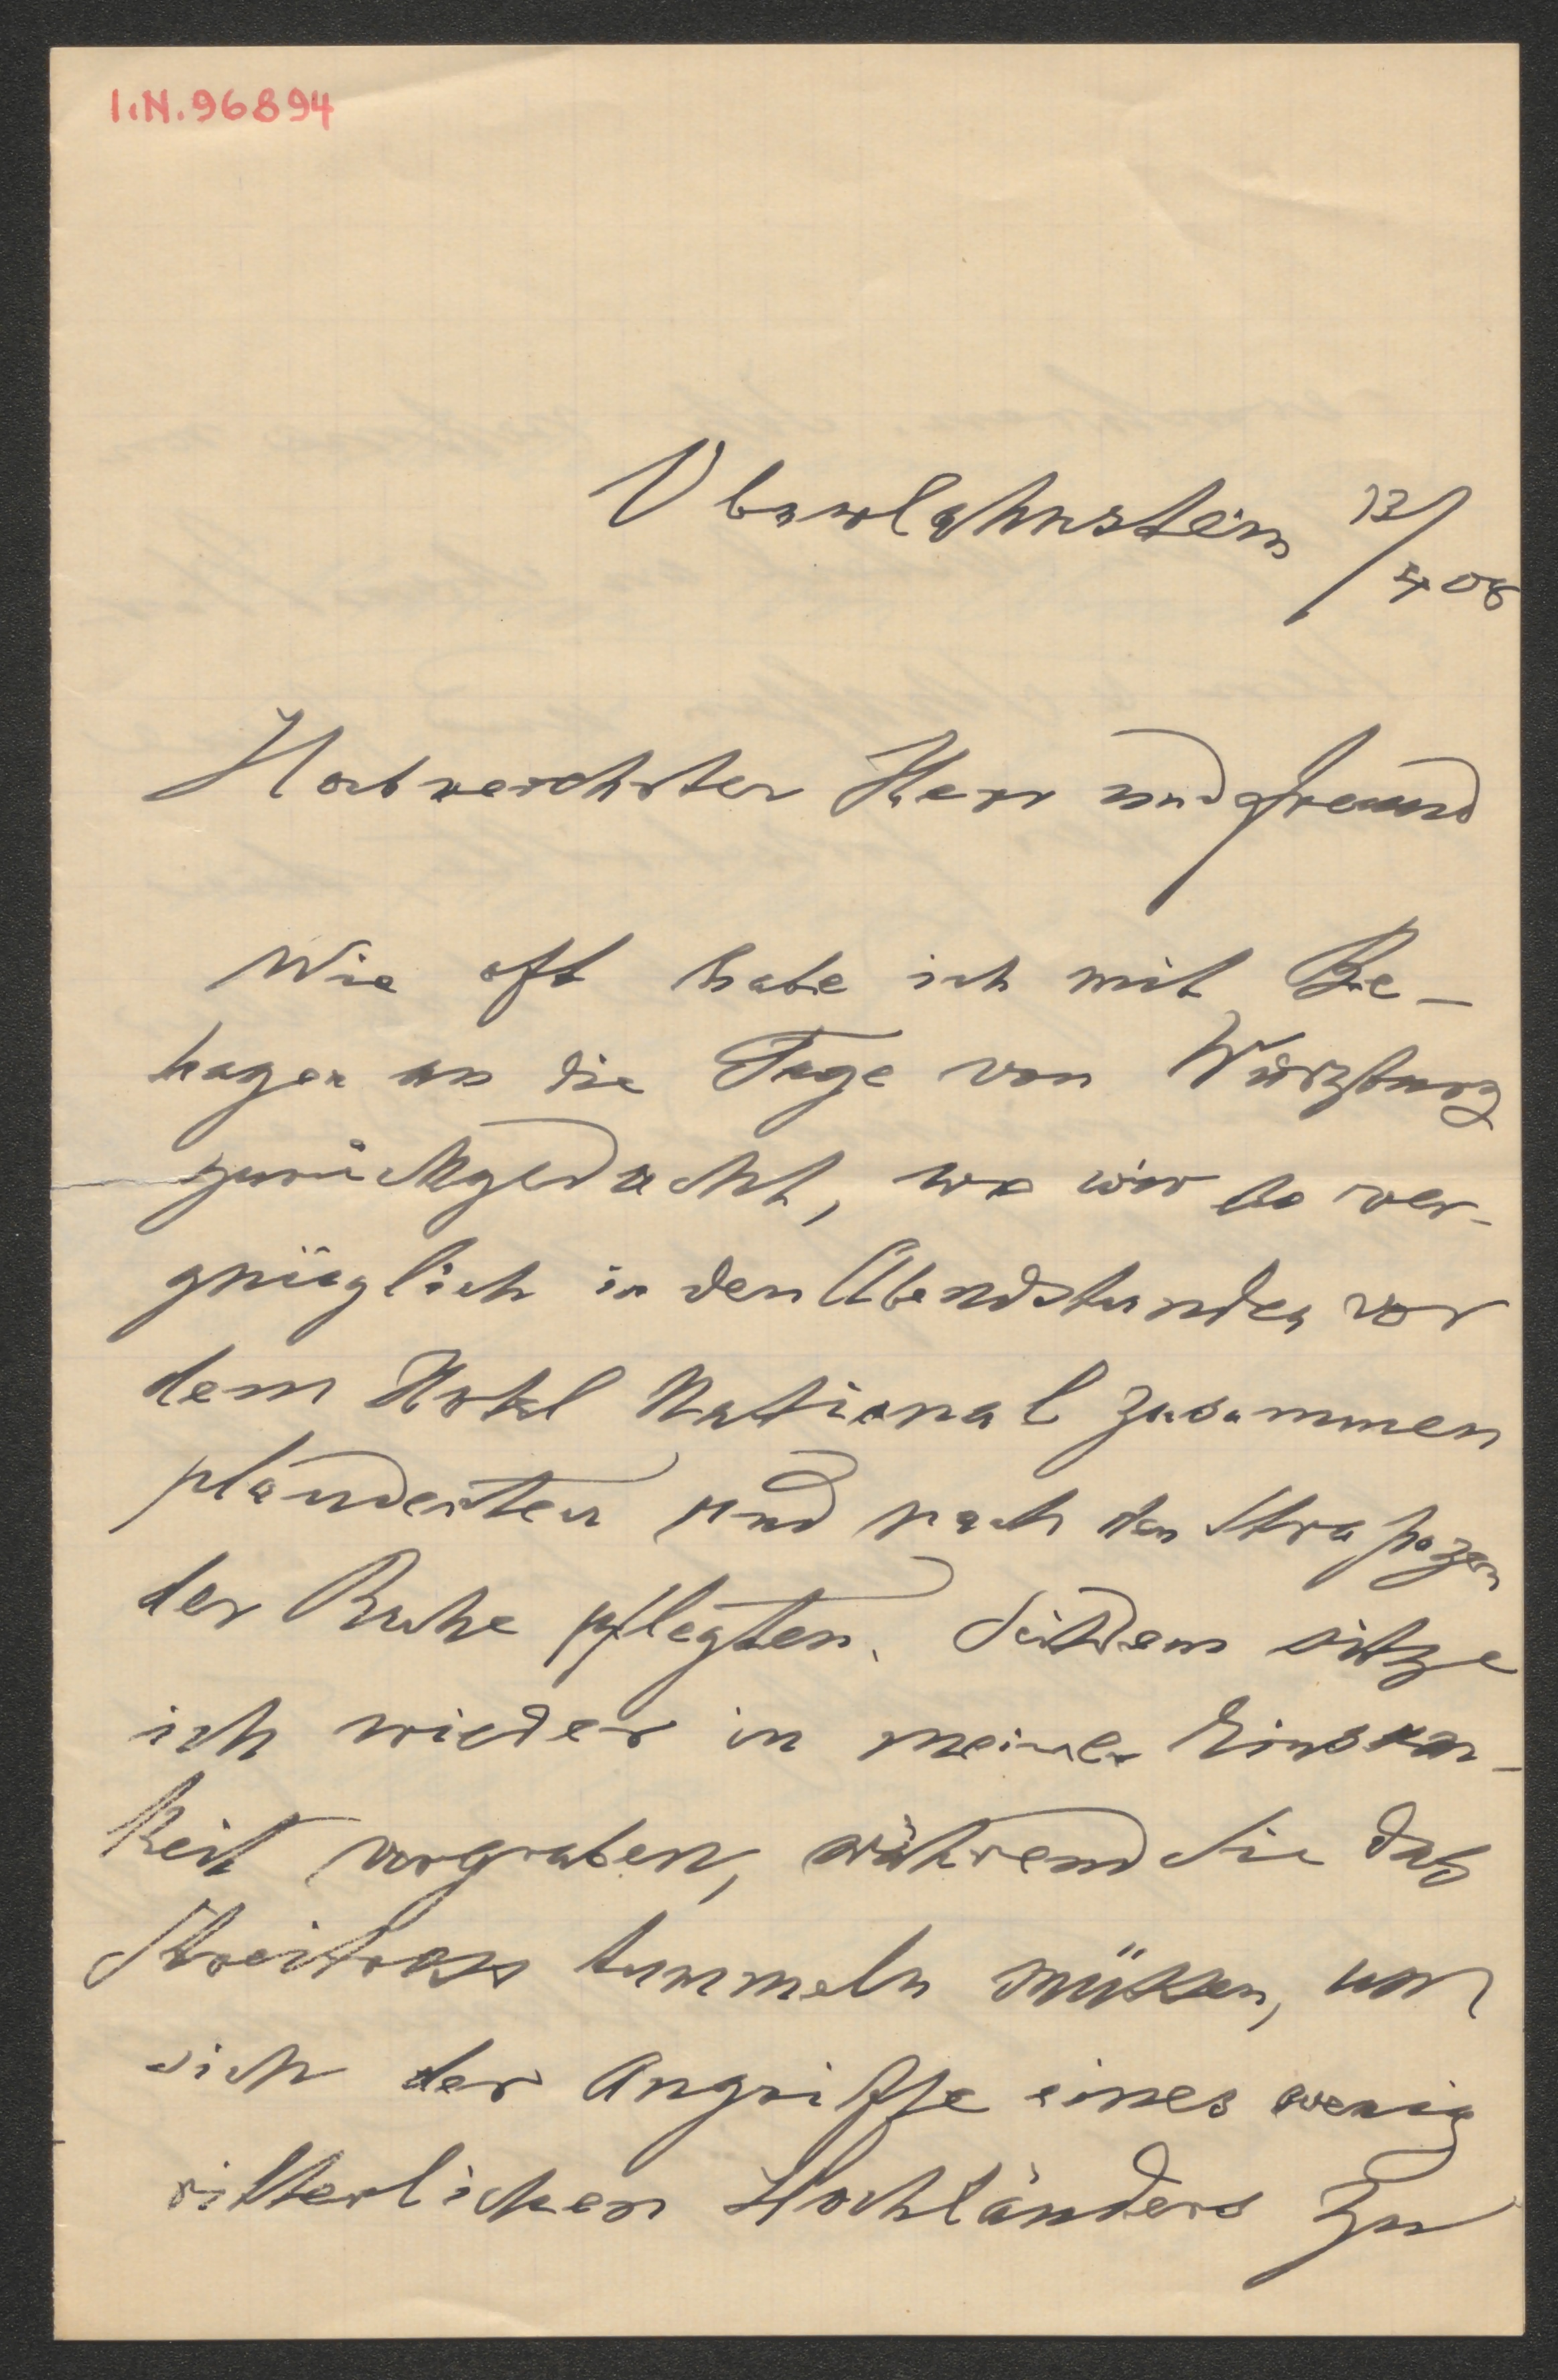 I.N. 96894
Oberlahnstein 13/4 08
Hochverehrter Herr und Freund
Wie oft habe ich mit Be-
hagen an die Tage von Würzburg
zurückgedacht, wo wir so ver-
gnüglich in den Abendstunden vor
dem Hotel National zusammen
plauderten und nach den Strapazen
der Ruhe pflegten. Seitdem sitze
ich wieder in meiner Einsam-
keit vergraben, während Sie das
Streitross tummeln müssen, um
sich der Angriffe eines wenig
ritterlichen Hochländers zu